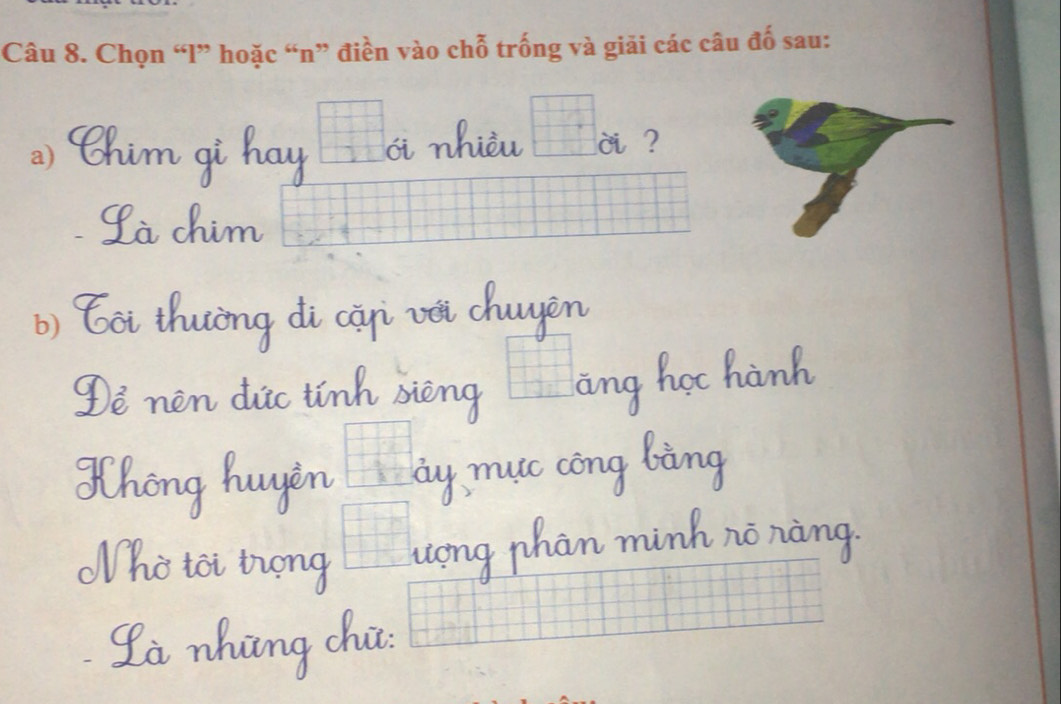 Câu 8. Chọn “l” hoặc “n” điền vào chỗ trống và giải các câu đố sau:
a) Chim gì hay ói nhiều ời ?
- Là chim
b) Tôi thường đi cặp với chuyên
Để nên đức tính siêng ăng học hành
Không huyền ảy mực công bằng
Nhờ tôi trọng ượng phân minh rõ ràng.
- Là những chữ: